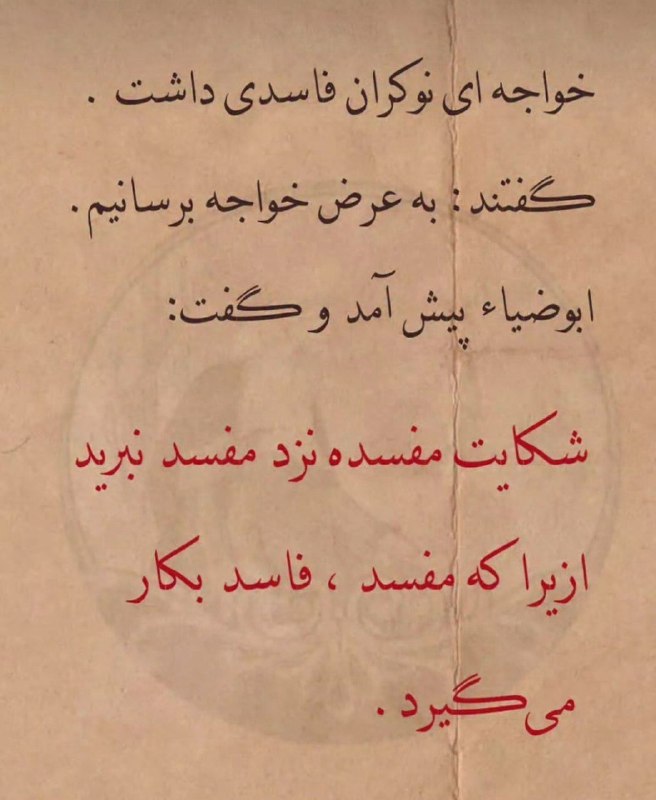 خواجه ای نوکران فاسدی داشت .
گفتند : به عرض خواجه برسانیم .
ابوضیاء پیش آمد و گفت:
شکایت مفسده نزد مفسد نبرید
ازیرا که مفسد ، فاسد بکار
می‌گیرد .